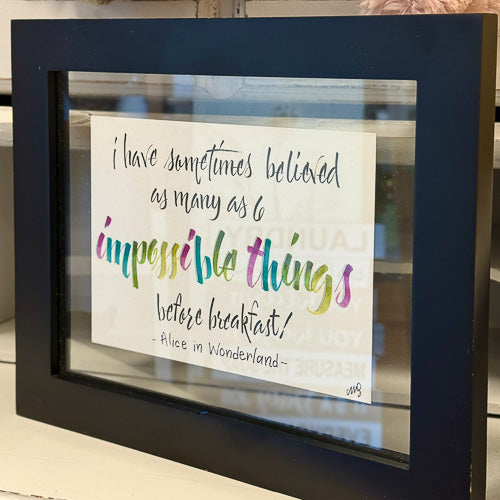 i have sometimes believed
as many as 6
impossible things
before breakfast!
- Alice in Wonderland -
LAUNDRY
MEASURE